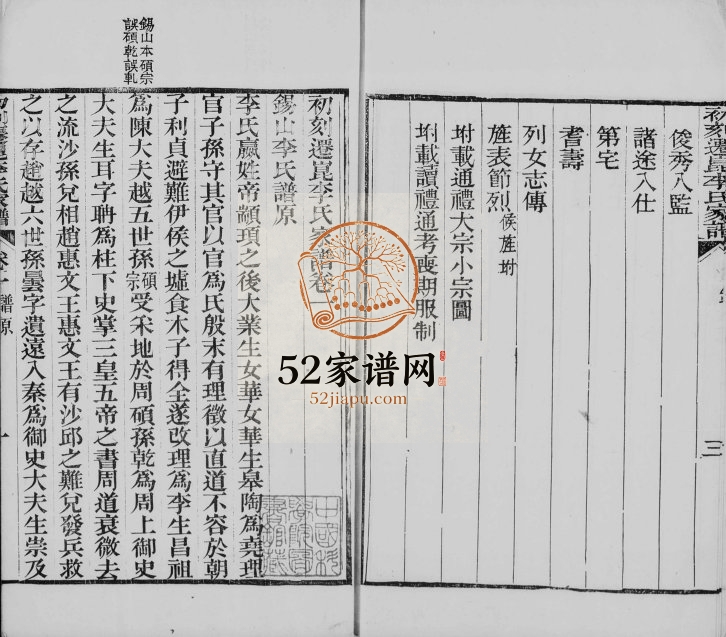 初刻遷崑李氏家譜
三
俊秀入監
諸途入仕
第宅
耆壽
列女志傳
旌表節烈 候旌坿
坿載通禮大宗小宗圖
坿載讀禮通考喪期服制
初刻遷崑李氏家譜卷一
錫山李氏譜原
李氏嬴姓帝顓頊之後大業生女華女華生皋陶爲堯理
官子孫守其官以官爲氏殷末有理徵以直道不容於朝
子利貞避難伊侯之墟食木子得全遂改理爲李生昌祖
爲陳大夫越五世孫碩宗受采地於周碩孫乾爲周上御史
大夫生耳字聃爲柱下史掌三皇五帝之書周道衰微去
之流沙孫兌相趙惠文王惠文王有沙邱之難兌發兵救
之以存趙越六世孫曇字遺遠入秦爲御史大夫生崇及
錫山本碩宗
誤碩乾誤軋
卷一 譜原
一
52家谱网
52jiapu.com